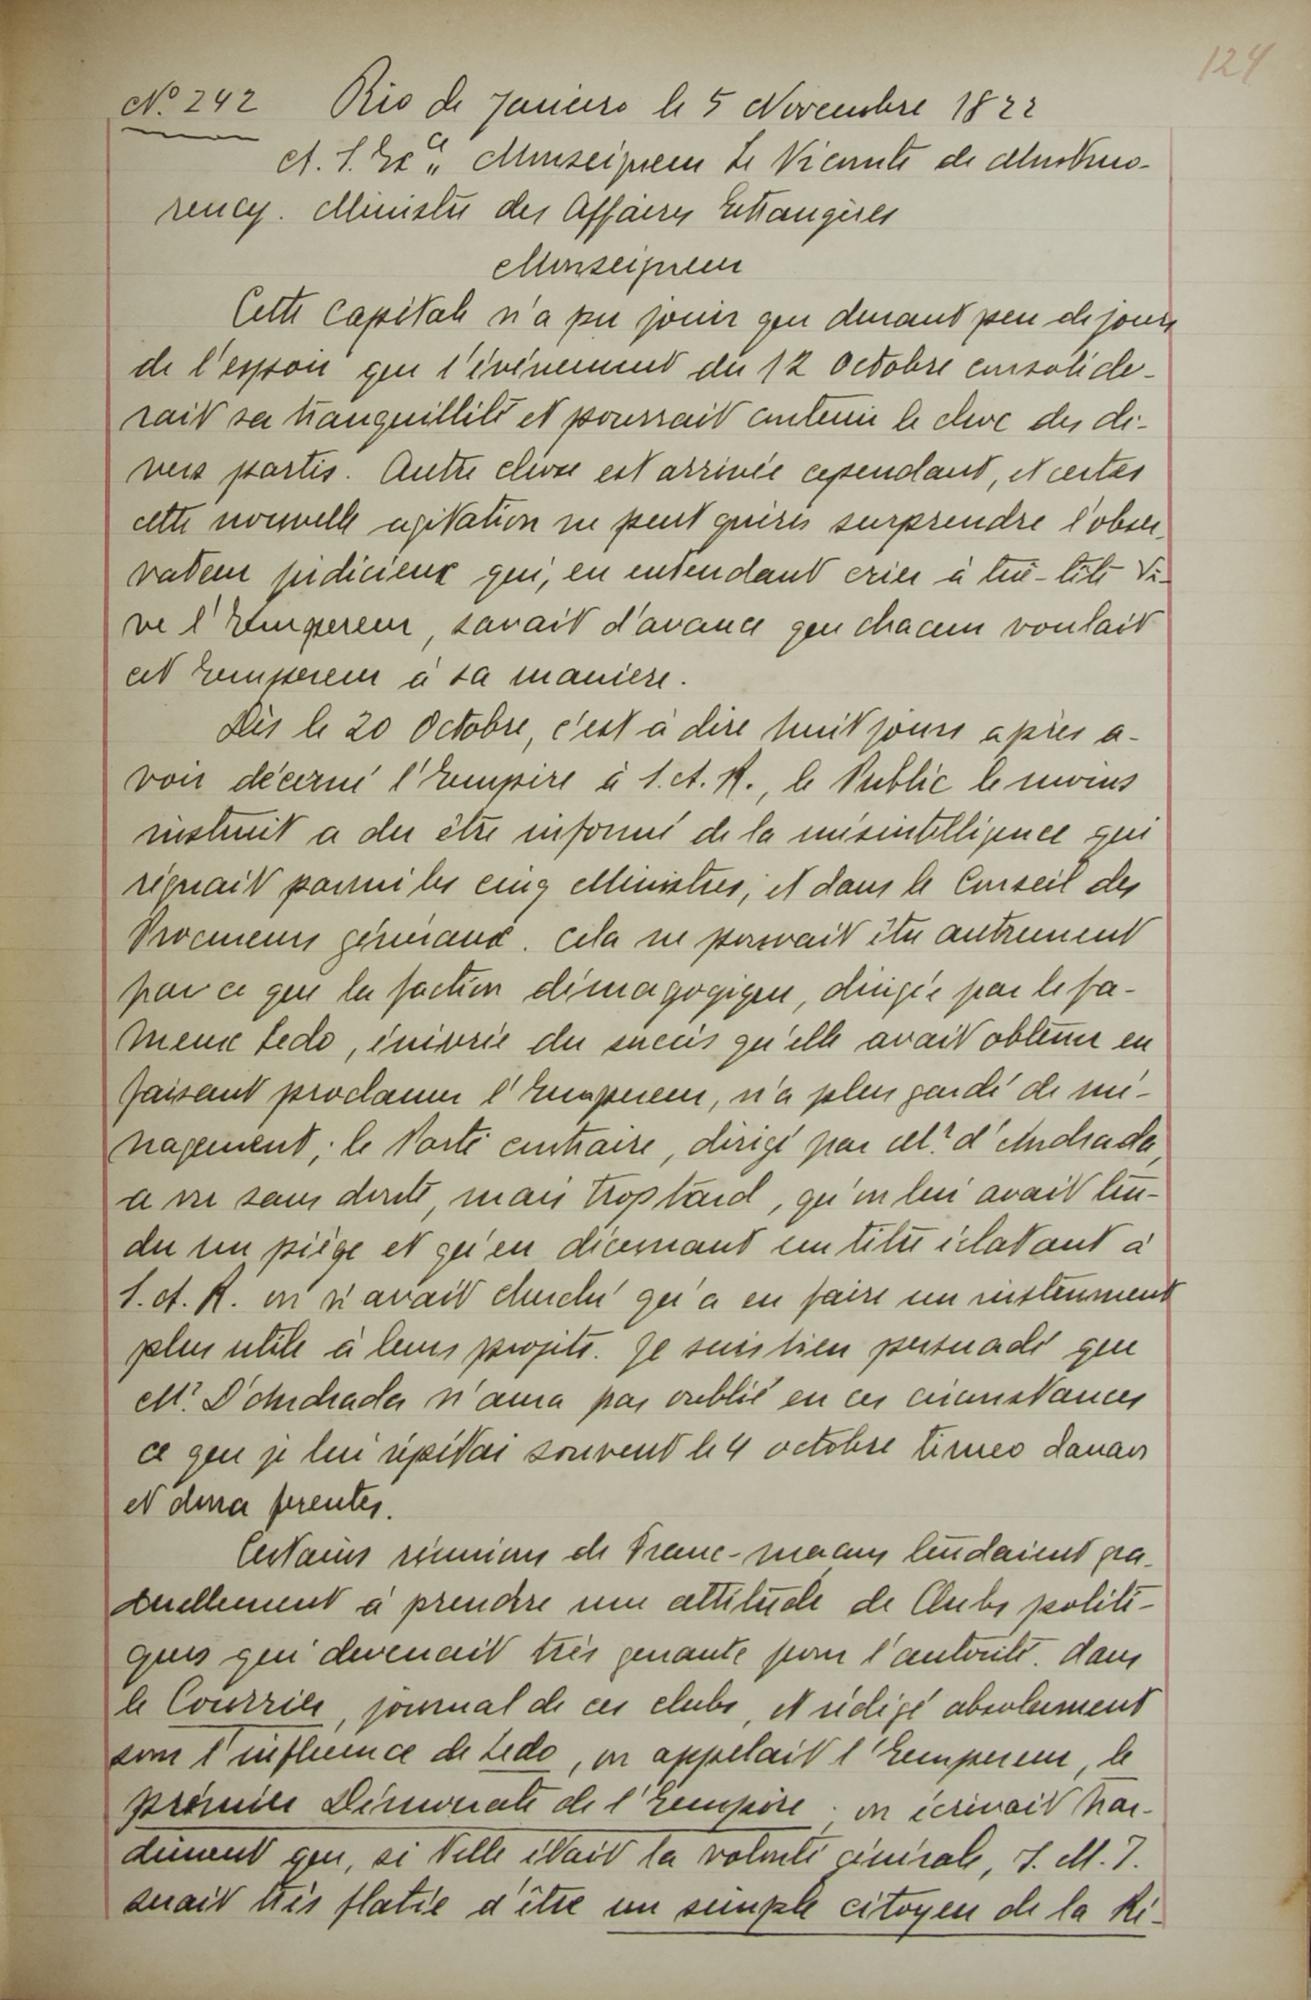 124
N.º 242 Rio de Janeiro le 5 Novembre 1822
A. S. Exce „ Monseigneur Le Vicomte de Montmo-
rency. Ministre des Affaires Etrangères
Monseigneur
Cette Capitale n'a pu jouir que durant peu de jours
de l'espoir que l'événement du 12 Octobre consolide-
rait sa tranquillité et pourrait contenir le choc des di-
vers partis. Autre chose est arrivée cependant, et certes
cette nouvelle agitation ne peut guères surprendre l'obser-
vateur judicieux qui, en entendant crier à tue-tête Vi-
ve l'Empereur, savait d'avance que chacun voulait
cet Empereur à sa manière.
Dès le 20 Octobre, c'est à dire huit jours après a-
voir décerné l'Empire à S. A. R., le Public le moins
instruit a du être informé de la mésintelligence qui
régnait parmi les cinq Ministres, et dans le Conseil des
Procureurs généraux. Cela ne pouvait être autrement
par ce que la faction démagogique, dirigée par le fa-
meux Ledo, énivrée du succès qu'elle avait obtenu en
faisant proclamer l'Empereur, n'a plus gardé de mé-
nagement; le Parti contraire, dirigé par M.r d'Andrada,
a vu sans doute, mais trop tard, qu'on lui avait ten-
du un piège et qu'en décernant un titre éclatant à
S. A. R. on n'avait cherché qu'a en faire un instrument
plus utile à leurs projets. Je suis bien persuadé que
M.r D'Andrada n'aura pas oublié en ces circonstances
ce que je lui répétai souvent le 4 octobre timeo danaos
et dona ferentes.
Certains réunions de Franc-maçons tendaient gra-
duellement à prendre une attitude de Clubs politi-
ques qui devenait très genante pour l'autorité. dans
le Courrier, journal de ces clubs, et rédigé absolument
sous l'influence de Ledo, on appelait l'Empereur, le
prémier Démocrate de l'Empire; on écrivait har-
diment que, si telle était la volonté générale, S. M. I.
serait très flatée d'être un simple citoyen de la Ré-